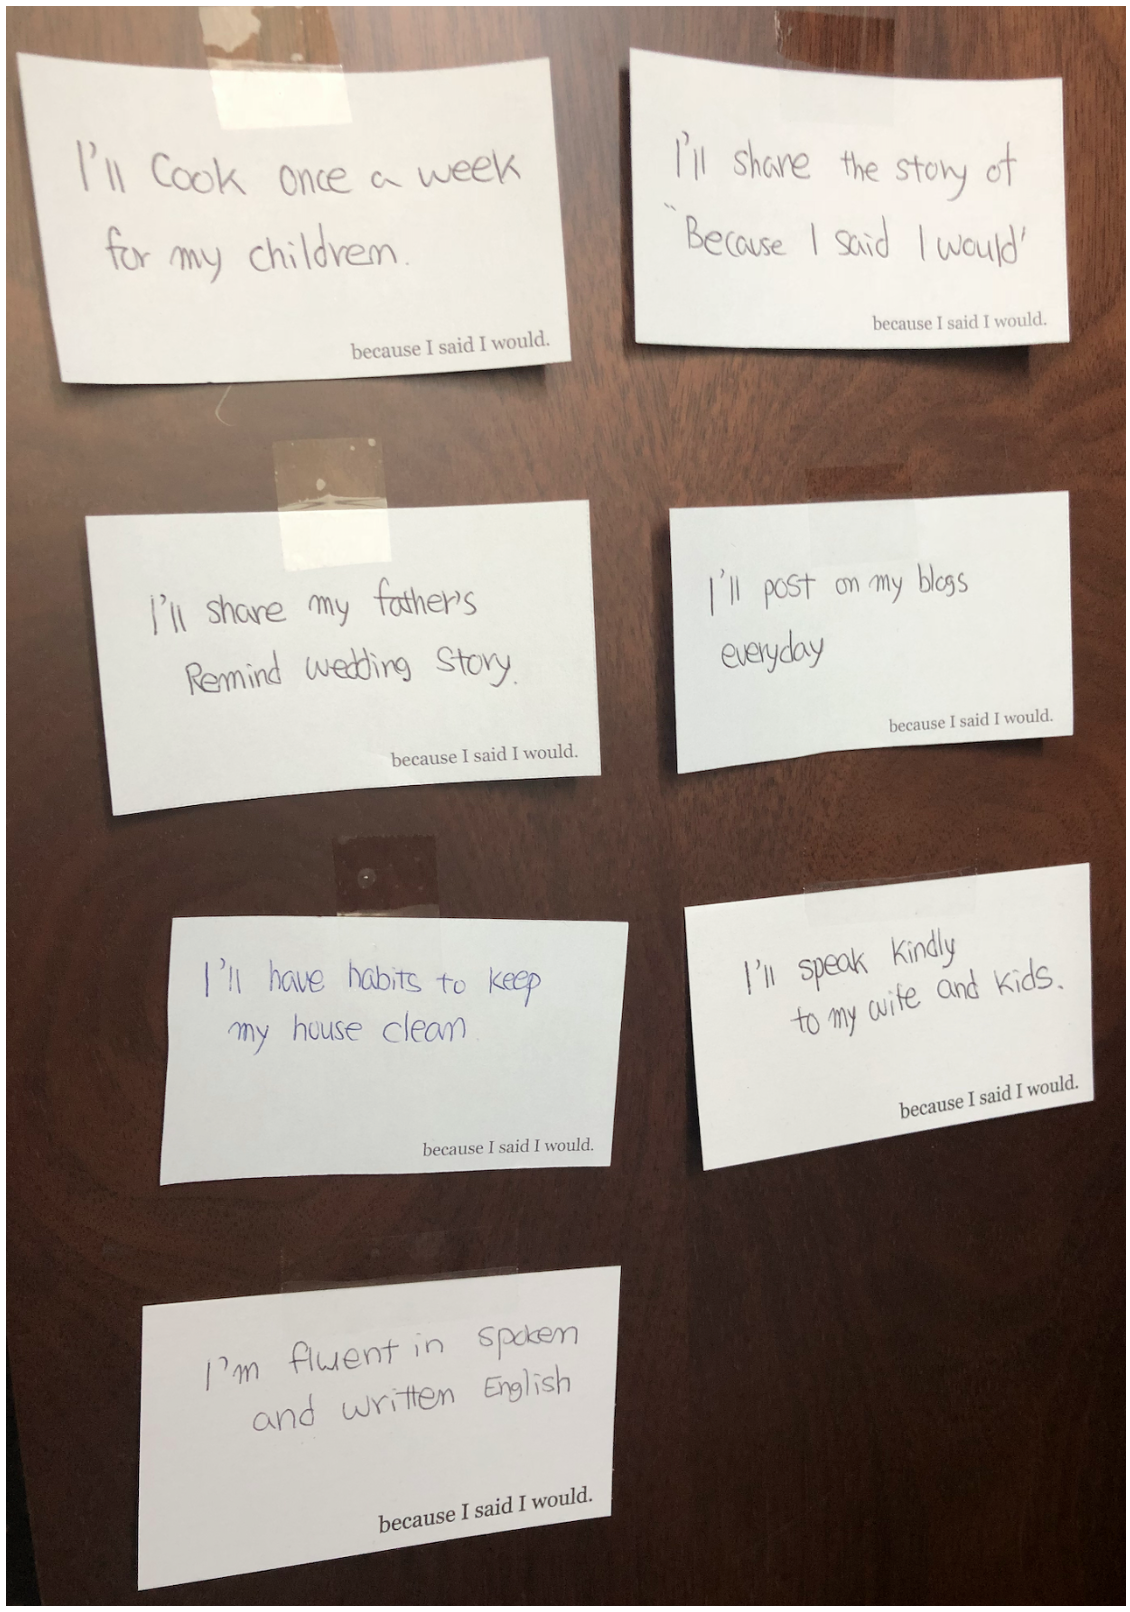 I'll Cook once a week
for my children.
because I said I would.
I'll share the story of
"Because I said I would'
because I said I would.
I'll share my father's
Remind wedding story.
because I said I would.
I'll post on my blogs
everyday
because I said I would.
I'll have habits to keep
my house clean.
because I said I would.
I'll speak kindly
to my wife and kids.
because I said I would.
I'm fluent in spoken
and written English
because I said I would.